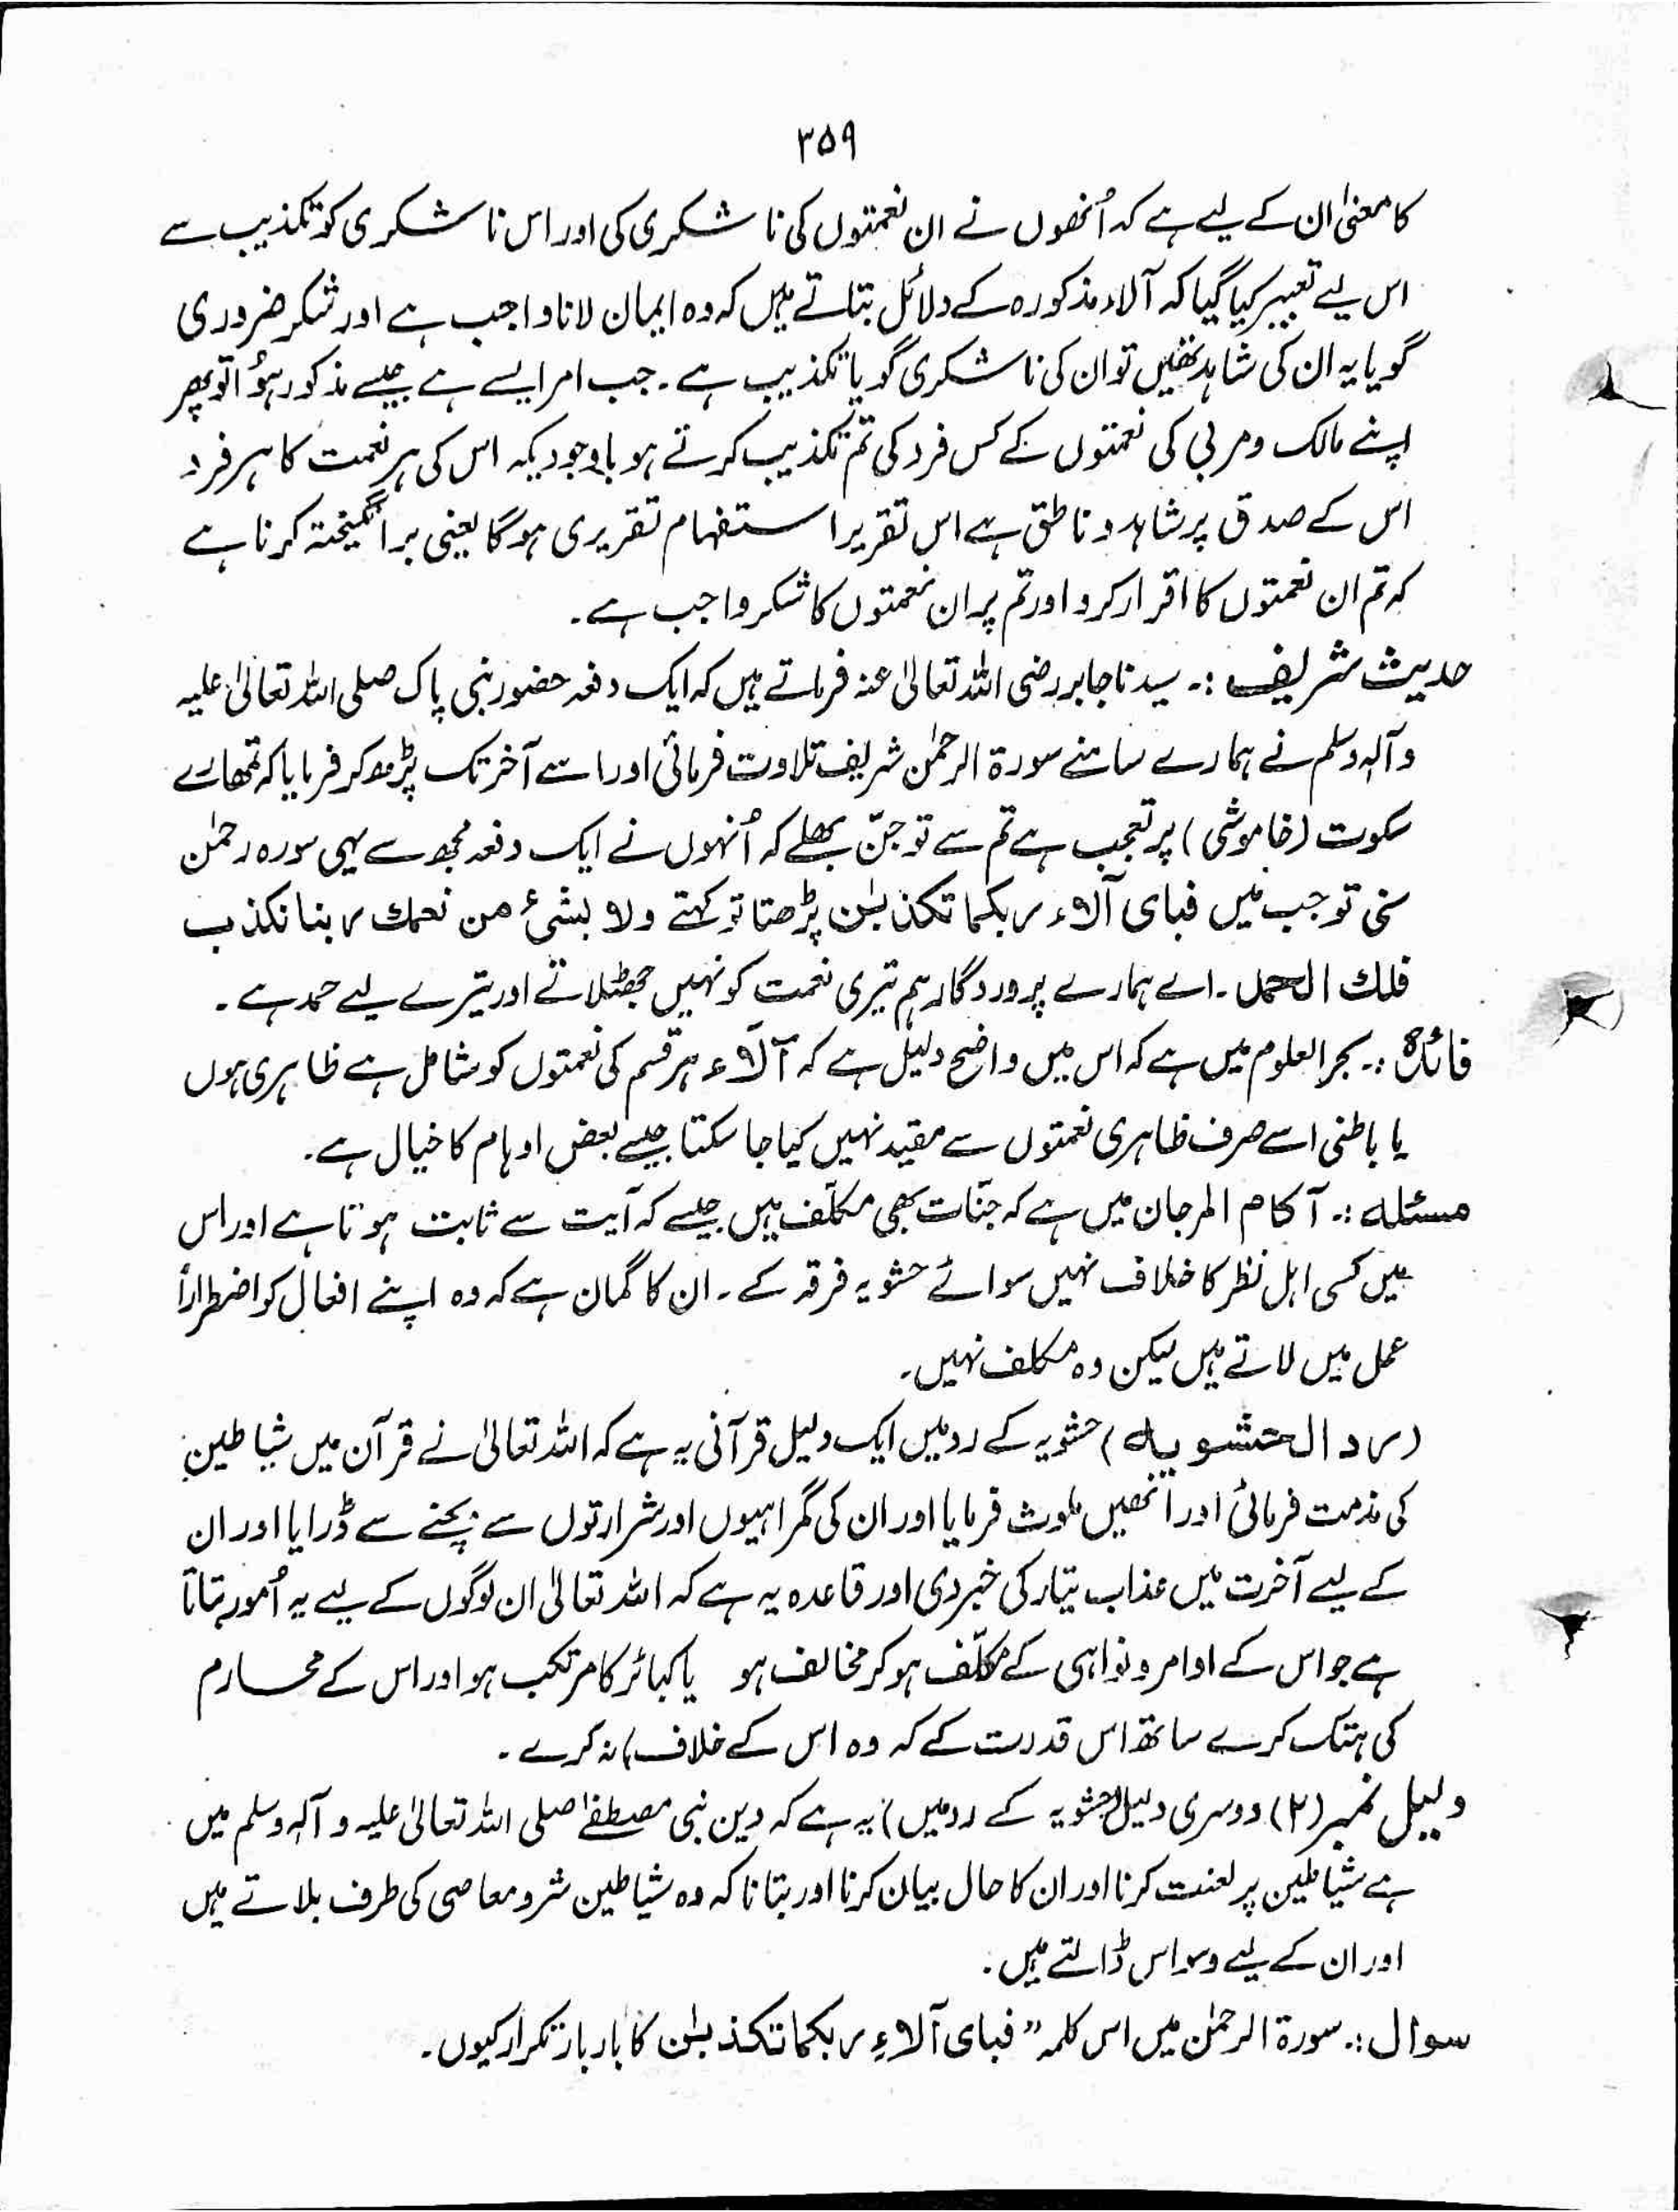 ۳۵۹
کا معنیٰ ان کے لیے ہے کہ اُنھوں نے ان نعمتوں کی نا شکری کی اور اس نا شکری کو تکذیب سے
اس لیے تعبیر کیا گیا کہ آلاء مذکورہ کے دلائل بتاتے ہیں کہ وہ ایمان لانا واجب ہے اور شکر ضروری
گویا یہ ان کی شاہد تھیں تو ان کی نا شکری گویا تکذیب ہے۔ جب امر ایسے ہے جیسے مذکور ہوُا تو پھر
اپنے مالک و مربی کی نعمتوں کے کس فرد کی تم تکذیب کرتے ہو باوجودیکہ اس کی ہر نعمت کا ہر فرد
اس کے صدق پر شاہد و ناطق ہے اس تقریر استفہام تقریری ہوگا یعنی برانگیختہ کرنا ہے
کہ تم ان نعمتوں کا اقرار کرو اور تم پر ان نعمتوں کا شکر واجب ہے۔
حدیث شریف :۔ سیدنا جابر رضی اللہ تعالیٰ عنہ فرماتے ہیں کہ ایک دفعہ حضور نبی پاک صلی اللہ تعالیٰ علیہ
و آلہٖ وسلم نے ہمارے سامنے سورۃ الرحمٰن شریف تلاوت فرمائی اور اسے آخر تک پڑھ کر فرمایا کہ تمھارے
سکوت (خاموشی) پر تعجب ہے تم سے تو جنّ بھلے کہ اُنہوں نے ایک دفعہ مجھ سے یہی سورہ رحمٰن
سنی تو جب میں فبای آلاء ربکما تکذبٰن پڑھتا تو کہتے ولا بشیٔ من نعمك ربنا نکذب
فلك الحمد ۔ اے ہمارے پروردگار ہم تیری نعمت کو نہیں جھٹلاتے اور تیرے لیے حمد ہے ۔
فائدہ :۔ بحر العلوم میں ہے کہ اس میں واضح دلیل ہے کہ آلاَء ہر قسم کی نعمتوں کو شامل ہے ظاہری ہوں
یا باطنی اسے صرف ظاہری نعمتوں سے مقید نہیں کیا جا سکتا جیسے بعض اوہام کا خیال ہے۔
مسئلہ :۔ آکام المرجان میں ہے کہ جنّات بھی مکلّف ہیں جیسے کہ آیت سے ثابت ہوتا ہے اور اس
میں کسی اہل نظر کا خلاف نہیں سوائے حشویہ فرقہ کے ۔ ان کا گمان ہے کہ وہ اپنے افعال کو اضطراراً
عمل میں لاتے ہیں لیکن وہ مکلف نہیں۔
(رد الحشویہ) حشویہ کے رد میں ایک دلیل قرآنی یہ ہے کہ اللہ تعالیٰ نے قرآن میں شیاطین
کی مذمت فرمائی اور انھیں ملوث فرمایا اور ان کی گمراہیوں اور شرارتوں سے بچنے سے ڈرایا اور ان
کے لیے آخرت میں عذاب تیار کی خبر دی اور قاعدہ یہ ہے کہ اللہ تعالیٰ ان لوگوں کے لیے یہ اُمور بتاتا
ہے جو اس کے اوامر و نواہی کے مکلّف ہو کر مخالف ہو یا کبائر کا مرتکب ہو اور اس کے محارم
کی ہتک کرے ساتھ اس قدرت کے کہ وہ اس کے خلاف) نہ کرے ۔
دلیل نمبر (۲) دوسری دلیل (حشویہ کے رد میں) یہ ہے کہ دین نبی مصطفےٰ صلی اللہ تعالیٰ علیہ و آلہٖ وسلم میں
ہے شیاطین پر لعنت کرنا اور ان کا حال بیان کرنا اور بتانا کہ وہ شیاطین شر و معاصی کی طرف بلاتے ہیں
اور ان کے لیے وسواس ڈالتے ہیں۔
سوال :۔ سورۃ الرحمٰن میں اس کلمہ "فبای آلاءِ ربکما تکذبٰن کا بار بار تکرار کیوں۔